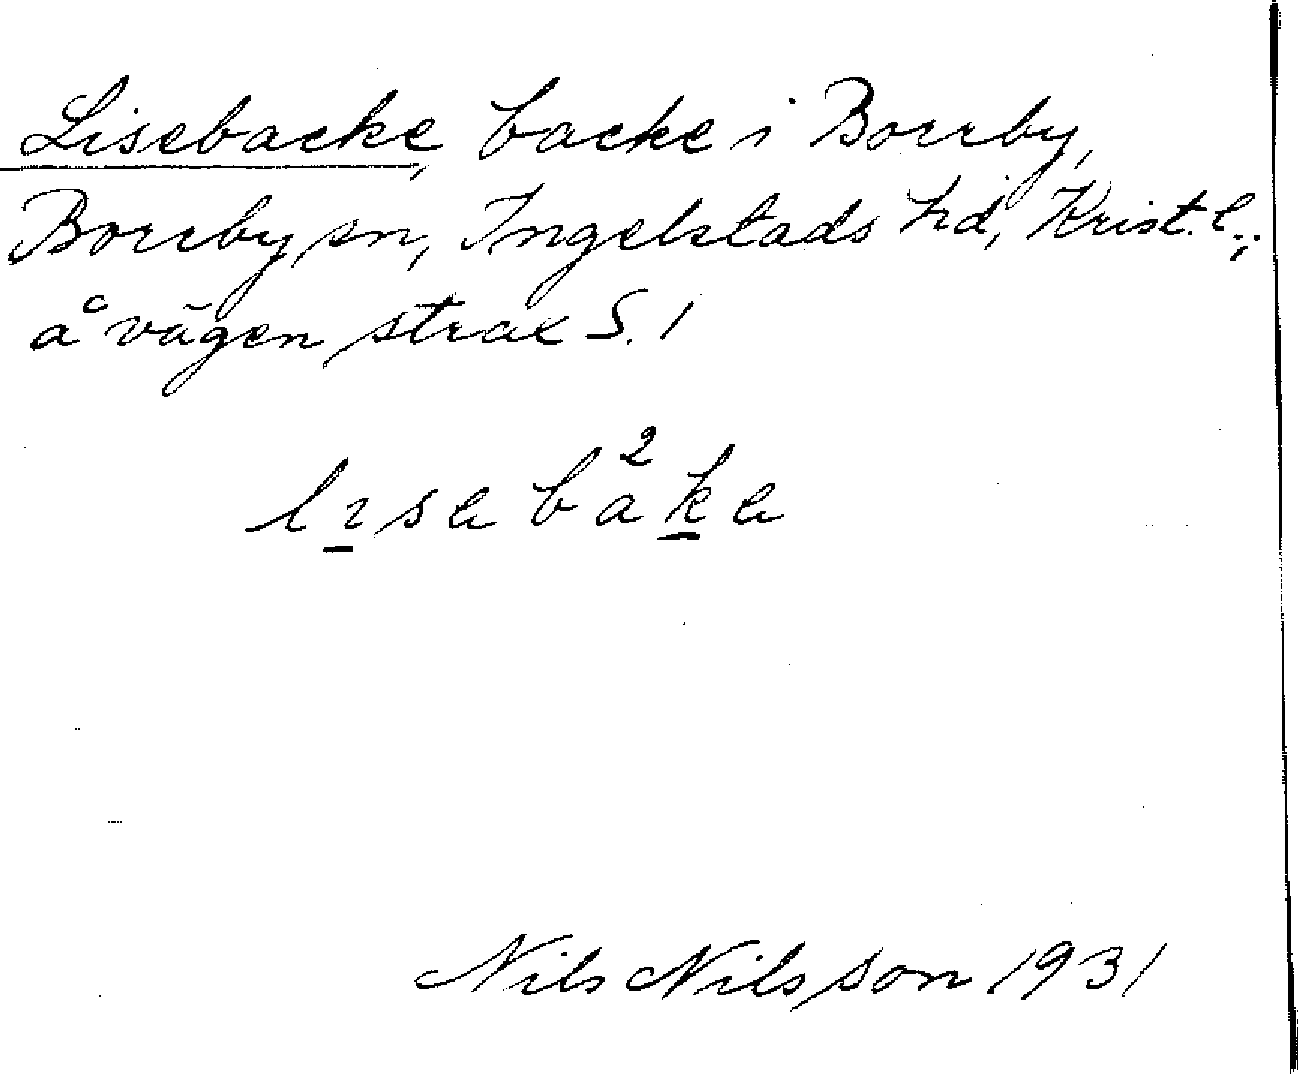 Lisebacke, backe i Borrby,
Borrby sn, Ingelstads hd, Krist. l.;
å vägen strax S. 1
lısabå²ka
Nils Nilsson 1931